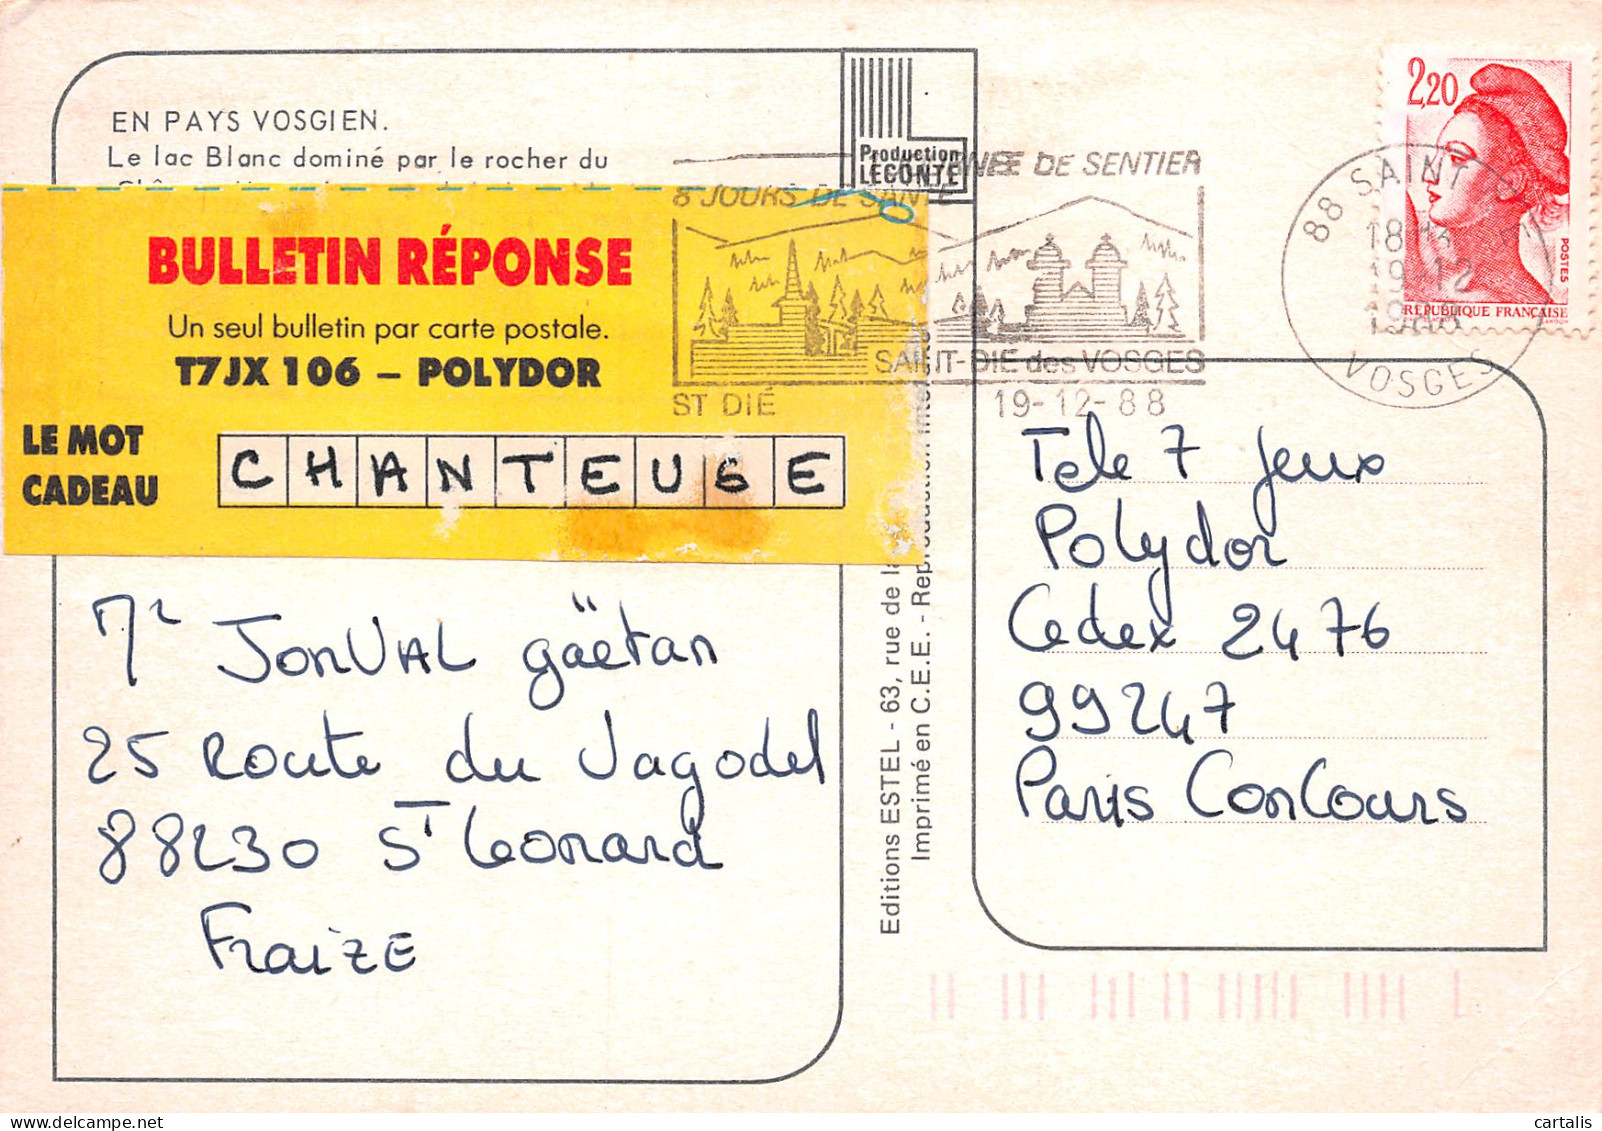 EN PAYS VOSGIEN.
Le lac Blanc dominé par le rocher du
Production
LECONTE
DE SENTIER
8 JOURS DE SANTE
SAINT-DIE des VOSGES
ST DIÉ
19-12-88
2,20
POSTES
REPUBLIQUE FRANÇAISE
88 SAINT DIE
18H
19-12
1988
VOSGES
BULLETIN RÉPONSE
Un seul bulletin par carte postale.
T7JX 106 – POLYDOR
LE MOT
CADEAU
CHANTEUSE
Mr JONVAL gaëtan
25 Route du Jagodel
88230 ST Leonard
Fraize
Editions ESTEL - 63, rue de
Imprimé en C.E.E. - Reproduction
Tele 7 jeux
Polydor
Cedex 2476
99247
Paris Concours
cartalis
delcampe.net